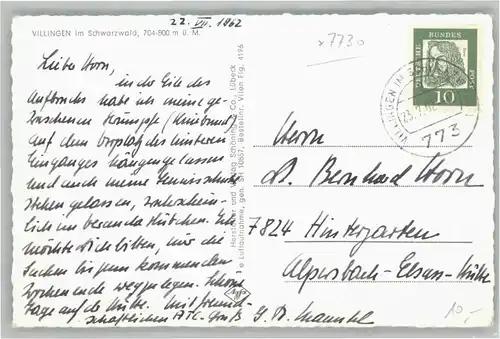 22. VII. 1962
VILLINGEN im Schwarzwald, 704-800 m ü. M.
x 7730
Lieber Horn,
in der Eile des
Aufbruchs habe ich meine ge-
waschenen Strümpfe
auf dem Vorplatz des hinteren
Einganges hängengelassen
und auch meine Tennisschuhe
stehen gelassen, wahrschein-
lich im Veranda Stübchen. Ich
möchte Dich bitten, mir die
Sachen bis zum kommenden
Wochenende wegzulegen. Schöne
Tage auf der Hütte. Mit freund-
schaftlichem ATC-Gruß
Hersteller und Verlag Schöning & Co., Lübeck
Luftaufnahme, gen. SH 1067, Bestellnr. Vllen Flg. 4196
DEUTSCHE BUNDESPOST
10
VILLINGEN IM SCHWARZWALD
773
Herrn
Dr. Bernhard Horn
7824 Hinterzarten
Alpersbach-Elsass-Hütte
10,-